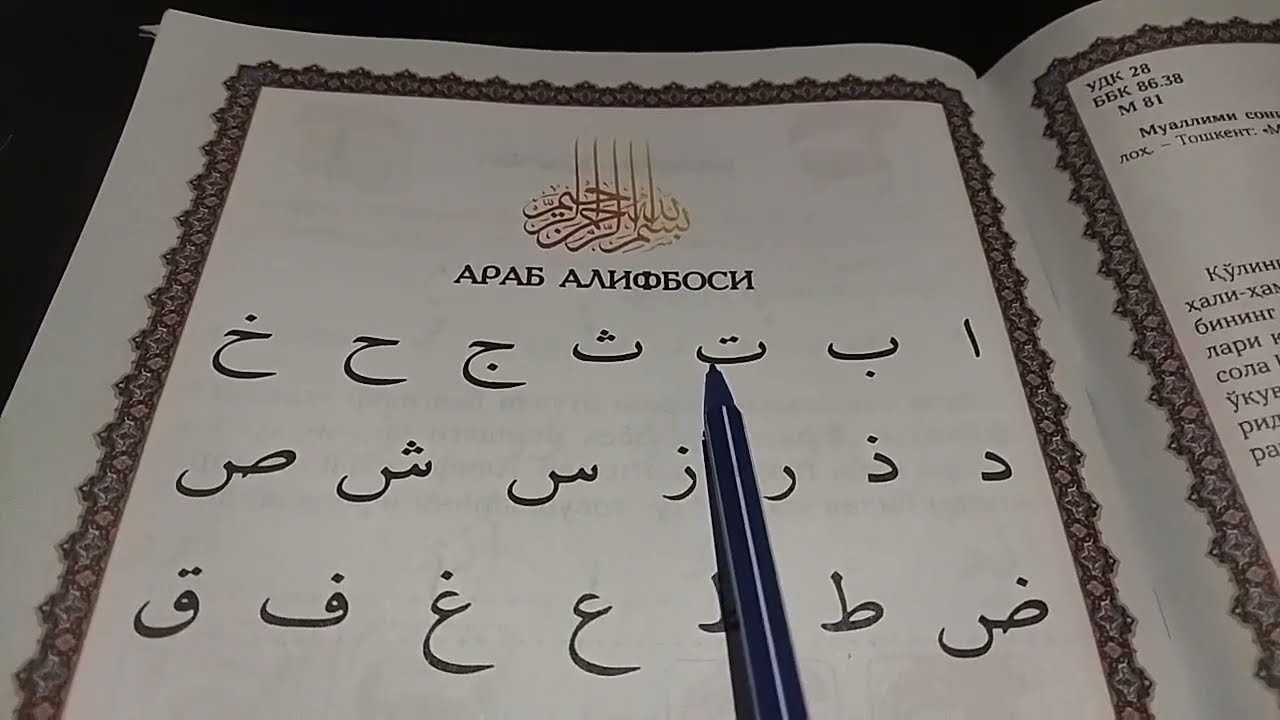 بسم الله الرحمن الرحيم
АРАБ АЛИФБОСИ
ا ب ت ث ج ح خ
د ذ ر ز س ش ص
ض ط ع غ ف ق
УДК 28
ББК 86.38
М 81
Муаллими
лоҳ. – Тошкент:
Қўлинг
ҳали-ҳам
бининг
лари
сола
ўқув
рид
ра